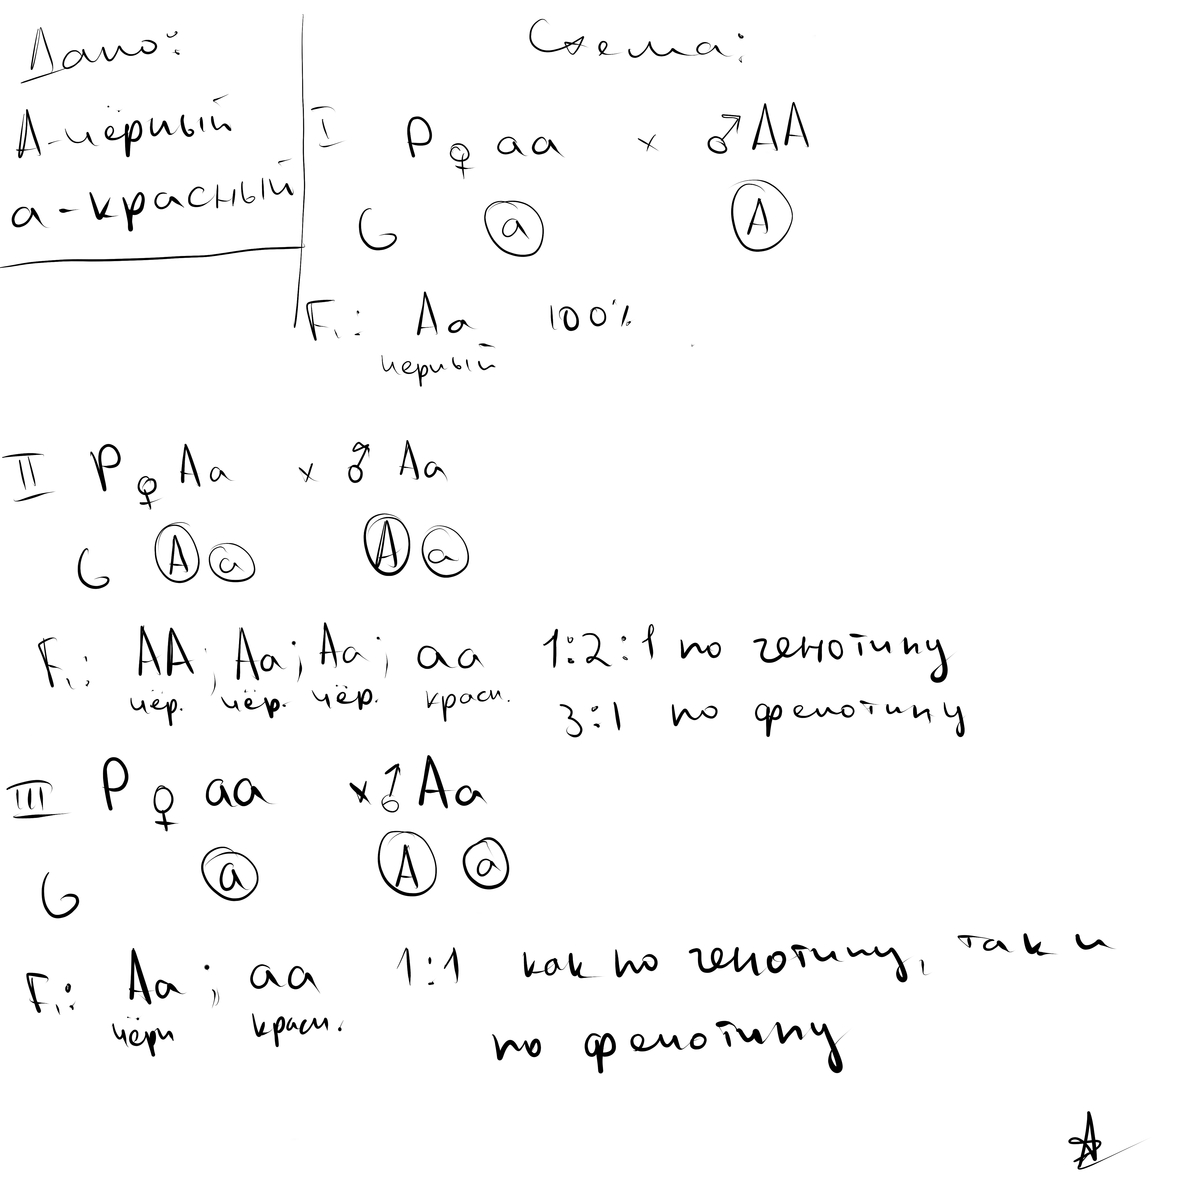 Дано:
А-чёрный
а-красный
Схема:
I P ♀ aa × ♂ AA
G a A
F₁: Aa 100%
черный
II P ♀ Aa × ♂ Aa
G A a A a
F₁: AA; Aa; Aa; aa 1:2:1 по генотипу
чёр. чёр. чёр. красн. 3:1 по фенотипу
III P ♀ aa × ♂ Aa
G a A a
F₁: Aa; aa 1:1 как по генотипу, так и
чёрн красн. по фенотипу